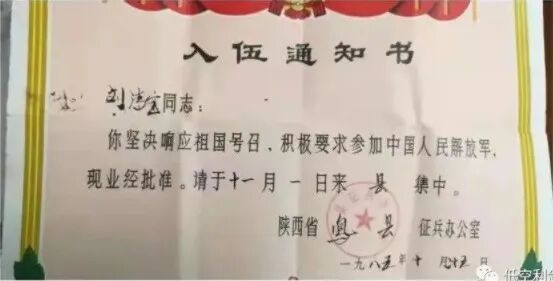 入伍通知书
刘
同志：
你坚决响应祖国号召，积极要求参加中国人民解放军，
现业经批准。请于十一月一日来县集中。
陕西省 县 征兵办公室
一九八五年十月十五日
低空利剑